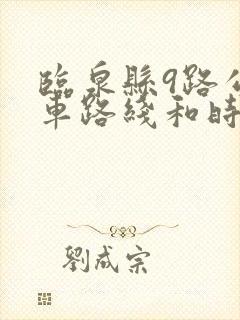 臨泉縣9路公
車路綫和時
劉成宗